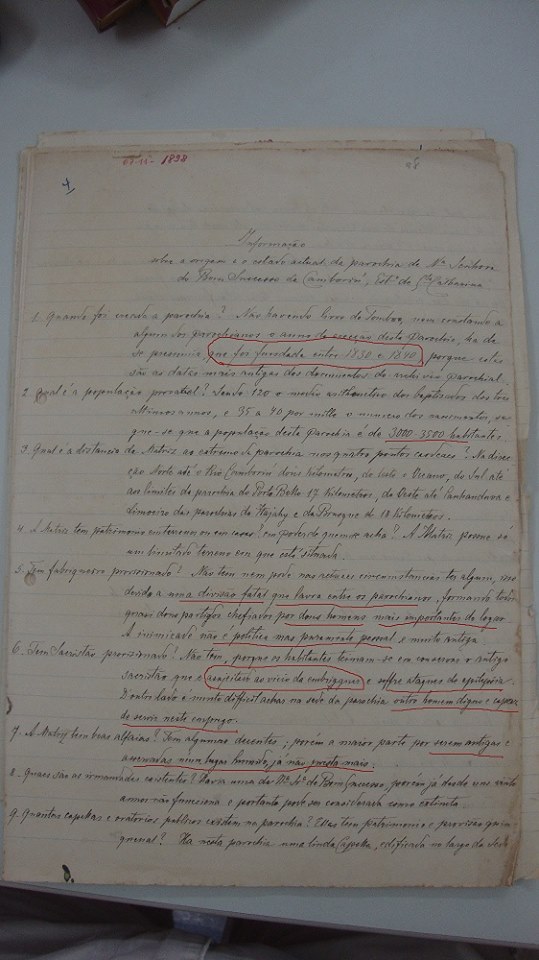 1898
Informação
sobre a origem e o estado actual da parochia de Nª Senhora
do Bom Successo de Camboriú, Estº de Stª Catharina
1. Quando foi creada a parochia? Não havendo livro de Tombo, nem constando a
alguns dos parochianos o anno da erecção desta Parochia, ha de
se presumir que foi fundada entre 1830 e 1840, porque estas
são as datas mais antigas dos documentos do archivo parochial.
2. Qual é a população provavel? Sendo 120 o medio arithmetico dos baptisados dos tres
ultimos annos, e 35 a 40 por mille o numero dos nascimentos, se-
gue-se que a população desta Parochia é de 3000-3500 habitantes.
3. Qual é a distancia da Matriz ao extremo da parochia nos quatro pontos cardeaes? Na direc-
ção Norte até o Rio Camboriú dois kilometros, de Leste o Oceano, do Sul até
aos limites da parochia de Porto Bello 17 kilometros, de Oeste até
limeira das parochias de Itajahy e de Brusque de 18 kilometros.
4. A Matriz tem patrimonio em terrenos ou em casas? em poder de quem se acha? A Matriz possue só
um limitado terreno em que está situada.
5. Tem fabriqueiro provisionado? Não tem nem pode nas actuaes circumstancias ter algum, isso
devido a uma divisão fatal que lavra entre os parochianos, formando todos
quasi dous partidos chefiados por dous homens mais importantes do logar.
A inimizade não é politica mas puramente pessoal e muito antiga.
6. Tem Sacristão provisionado? Não tem, porque os habitantes teimam-se em conservar o antigo
sacristão que é ao vicio da embriaguez e soffre ataques de epilepsia.
D'outro lado é muito difficil achar na sede da parochia outro homem digno e capaz
de servir neste emprego.
7. A Matriz tem boas alfaias? Tem algumas decentes; porém a maior parte por serem antigas e
num lugar humido, já não presta mais.
8. Quaes são as irmandades existentes? Havia uma de Nª Sª do Bom Successo, porém já desde uns vinte
annos não funcciona e portanto pode ser considerada como extincta.
9. Quantas capellas e oratorios publicos existem na parochia? Elles tem patrimonio e provisão quin-
quenal? Ha nesta parochia uma linda Capella, edificada no largo da